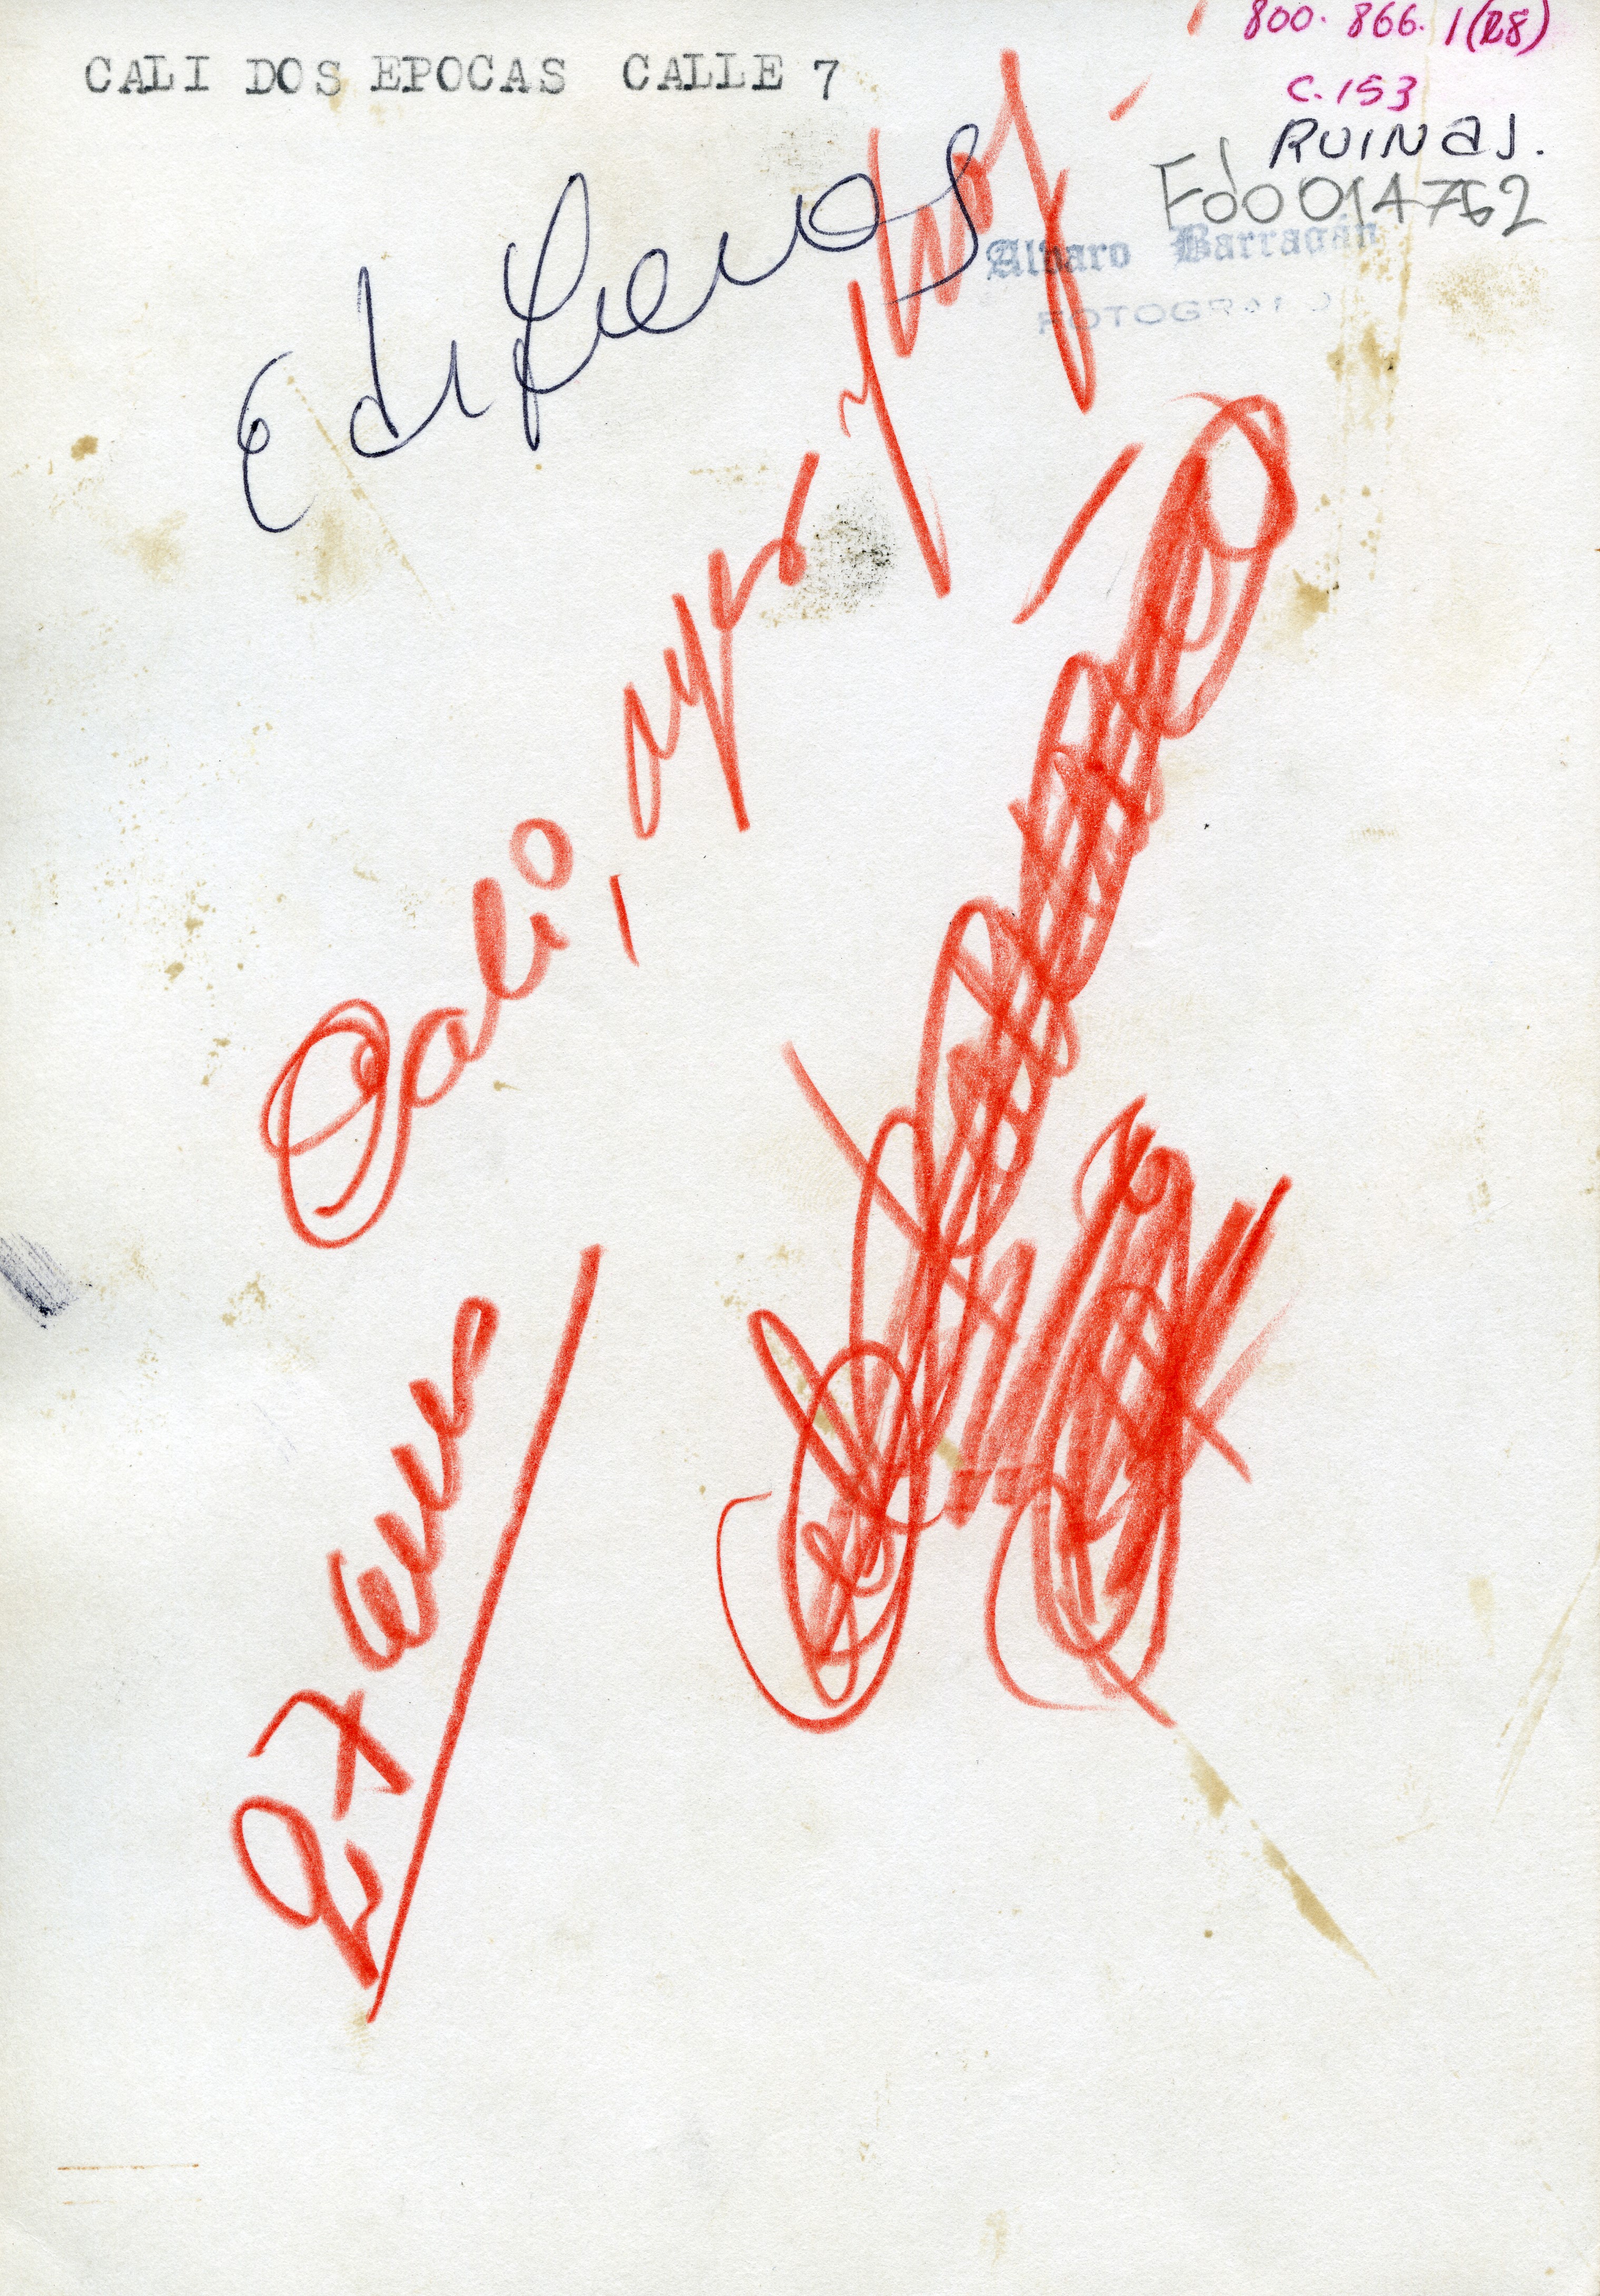 800. 866. 1(28)
CALI DOS EPOCAS CALLE 7
C.153
RUINAS.
Fdo 014762
Alvaro Barragán
FOTOGRAFO
Edificios
Cali, ayer y hoy.